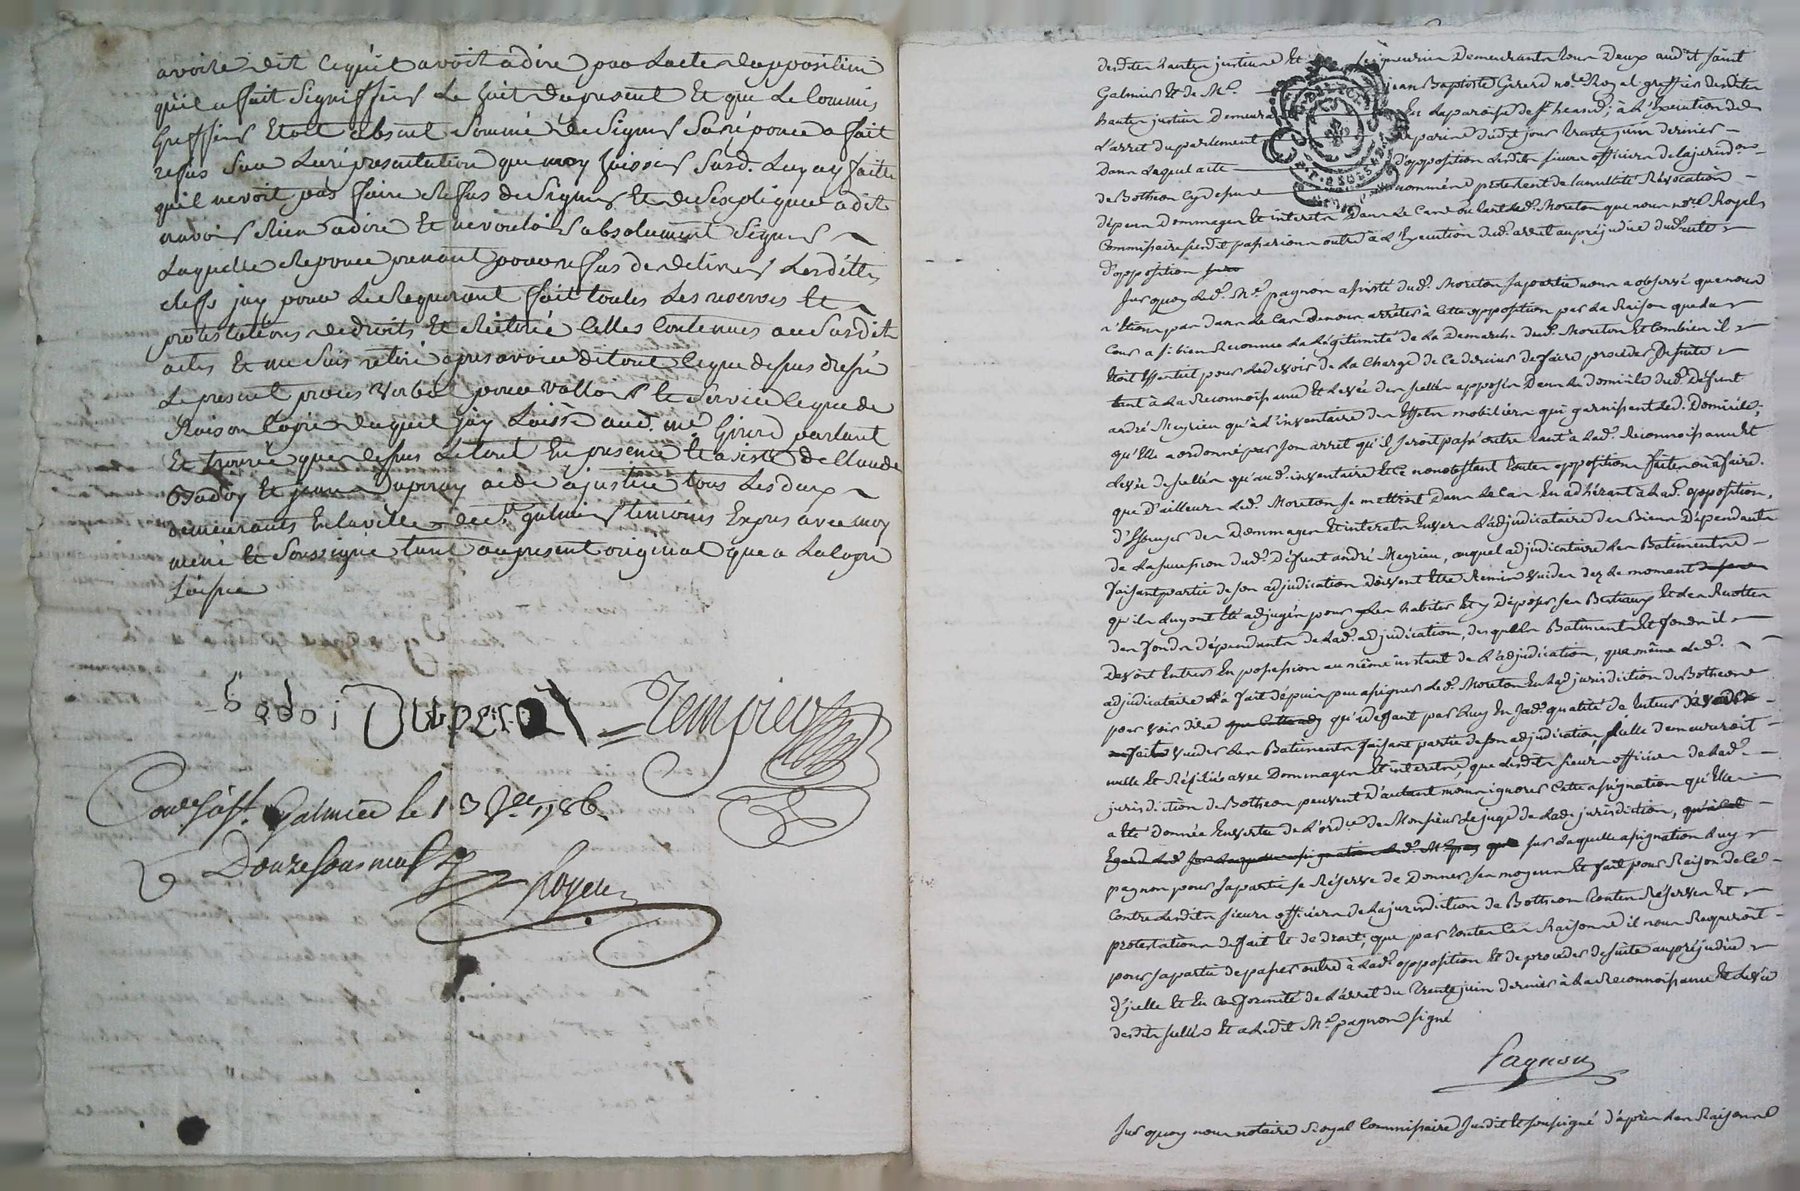 avoire dit ce quil avoit a dire par lacte dopposition
quil a fait signiffier le huit du present et que le commis
greffier etoit absent sommé de signer sa réponce a fait
refus sur la représentation que moy huissier susd. luy ay faitte
quil ne voit pas faire refus de signer et de sexpliquer a dit
navoir rien a dire et ne vouloir absolument signer
laquelle reponce prenant pour refus de delivrer lesdittes
clefs jay pour le requerant fait toutes les reserves et
protestations de droits et réitéré celles contenues au susdit
actes et me suis retiré apres avoir du tout ce que dessus dressé
le present proces verbal pour valloir et servir ce que de
raison copie duquel jay laissé aud. me Girard parlant
et trouvé que dessus le tout en presence et assisté de Claude
Badoy et jean Duperay aide a justice tous les deux
demeurants en la ville de st galmier temoins expres avec moy
mené et soussigné tant au present original que a la copie
laissée
Badoi Duperay Tempier
Conlé à st. Galmier le 13 7bre 1786.
Douze sous neuf d
Royer
desdites hautes justices et seigneurie demeurants tous deux audit saint
Galmier et de Me. jean Baptiste Girard nore. Royal greffier desdites
hautes justices demeura la paroisse de st heand, à l'exécution de
l'arret du parlement de paris dudit jour trente juin dernier
dans laquel acte d'opposition lesdits sieurs officiers de la jurisdon.
de Botheon cy dessus nommés protestent de la nullité révocation
dépens dommages et interets dans le cas ou tant led. Moreton que nous nore. Royal
Commissaire susdit passerions outre à l'exécution dud. arret au préjudice dud. acte
d'opposition
sur quoy led. Me. pagnon assisté dud. Moreton sa partie nous a observé que nous
n'étions pas dans le cas de nous arréter à cette opposition par la raison que la
Cour a si bien reconnue la légitimité de la demarche dud. Moreton et combien il
étoit essentiel pour le devoir de la charge de ce dernier de faire proceder de suite
tant à la reconnoissance et levée des scellés apposés dans le domicile dud. défunt
andré Meyrieu qu'à l'inventaire des effets mobiliers qui garnissent led. domicile,
qu'elle a ordonné par son arret qu'il seroit passé outre tant à lad. reconnoissance et
levée de scellés qu'aud. inventaire et ce nonobstant toutes oppositions faites ou à faire.
que d'ailleurs led. Moreton se mettroit dans le cas en adhérant à lad. opposition,
d'essuyer des dommages et interets envers l'adjudicataire des biens dépendants
de la succession dud. défunt andré Meyrieu, auquel adjudicataire les batiments
faisant partie de son adjudication doivent etre remis vuides dez le moment
qu'ils luy ont été adjugés pour les habiter et y déposer ses bestiaux et les récoltes
des fonds dépendants de lad. adjudication, desquels batiments et fonds il
devoit entrer en possession au même instant de l'adjudication, que même led.
adjudicataire l'a fait dépuis peu assigner led. Moreton en lad. jurisdiction de Botheon
pour voir dire qu'idessant par luy en sad. qualité de tuteur
vuider les batiments faisant partie de son adjudication, elle demeureroit
nulle et résiliée avec dommages et interets, que lesdits sieurs officiers de lad.
jurisdiction de Botheon peuvent d'autant moins ignorer cette assignation qu'elle
a été donnée en vertu de l'ordce. de Monsieur le juge de lade. jurisdiction,
sur laquelle assignation luy
pagnon pour sa partie se réserve de donner ses moyens et fait pour raison de ce
contre lesdits sieurs officiers de la jurisdiction de Botheon toutes réserves et
protestations de fait et de droit, que par toutes ces raisons il nous requeroit
pour sa partie de passer outre à lad. opposition et de proceder de suite au préjudice
d'jcelle et en conformité de l'arret du trente juin dernier à la reconnoissance et levée
desdits scellés et a ledit Me. pagnon signé
Pagnon
sur quoy nous notaire Royal commissaire susdit et soussigné d'après les raisons